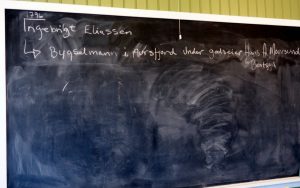 1796
Ingebrigt Eliassen
↳ Bygselmann i Aursfjord under godseier Hans A Moursund
Bentsjord